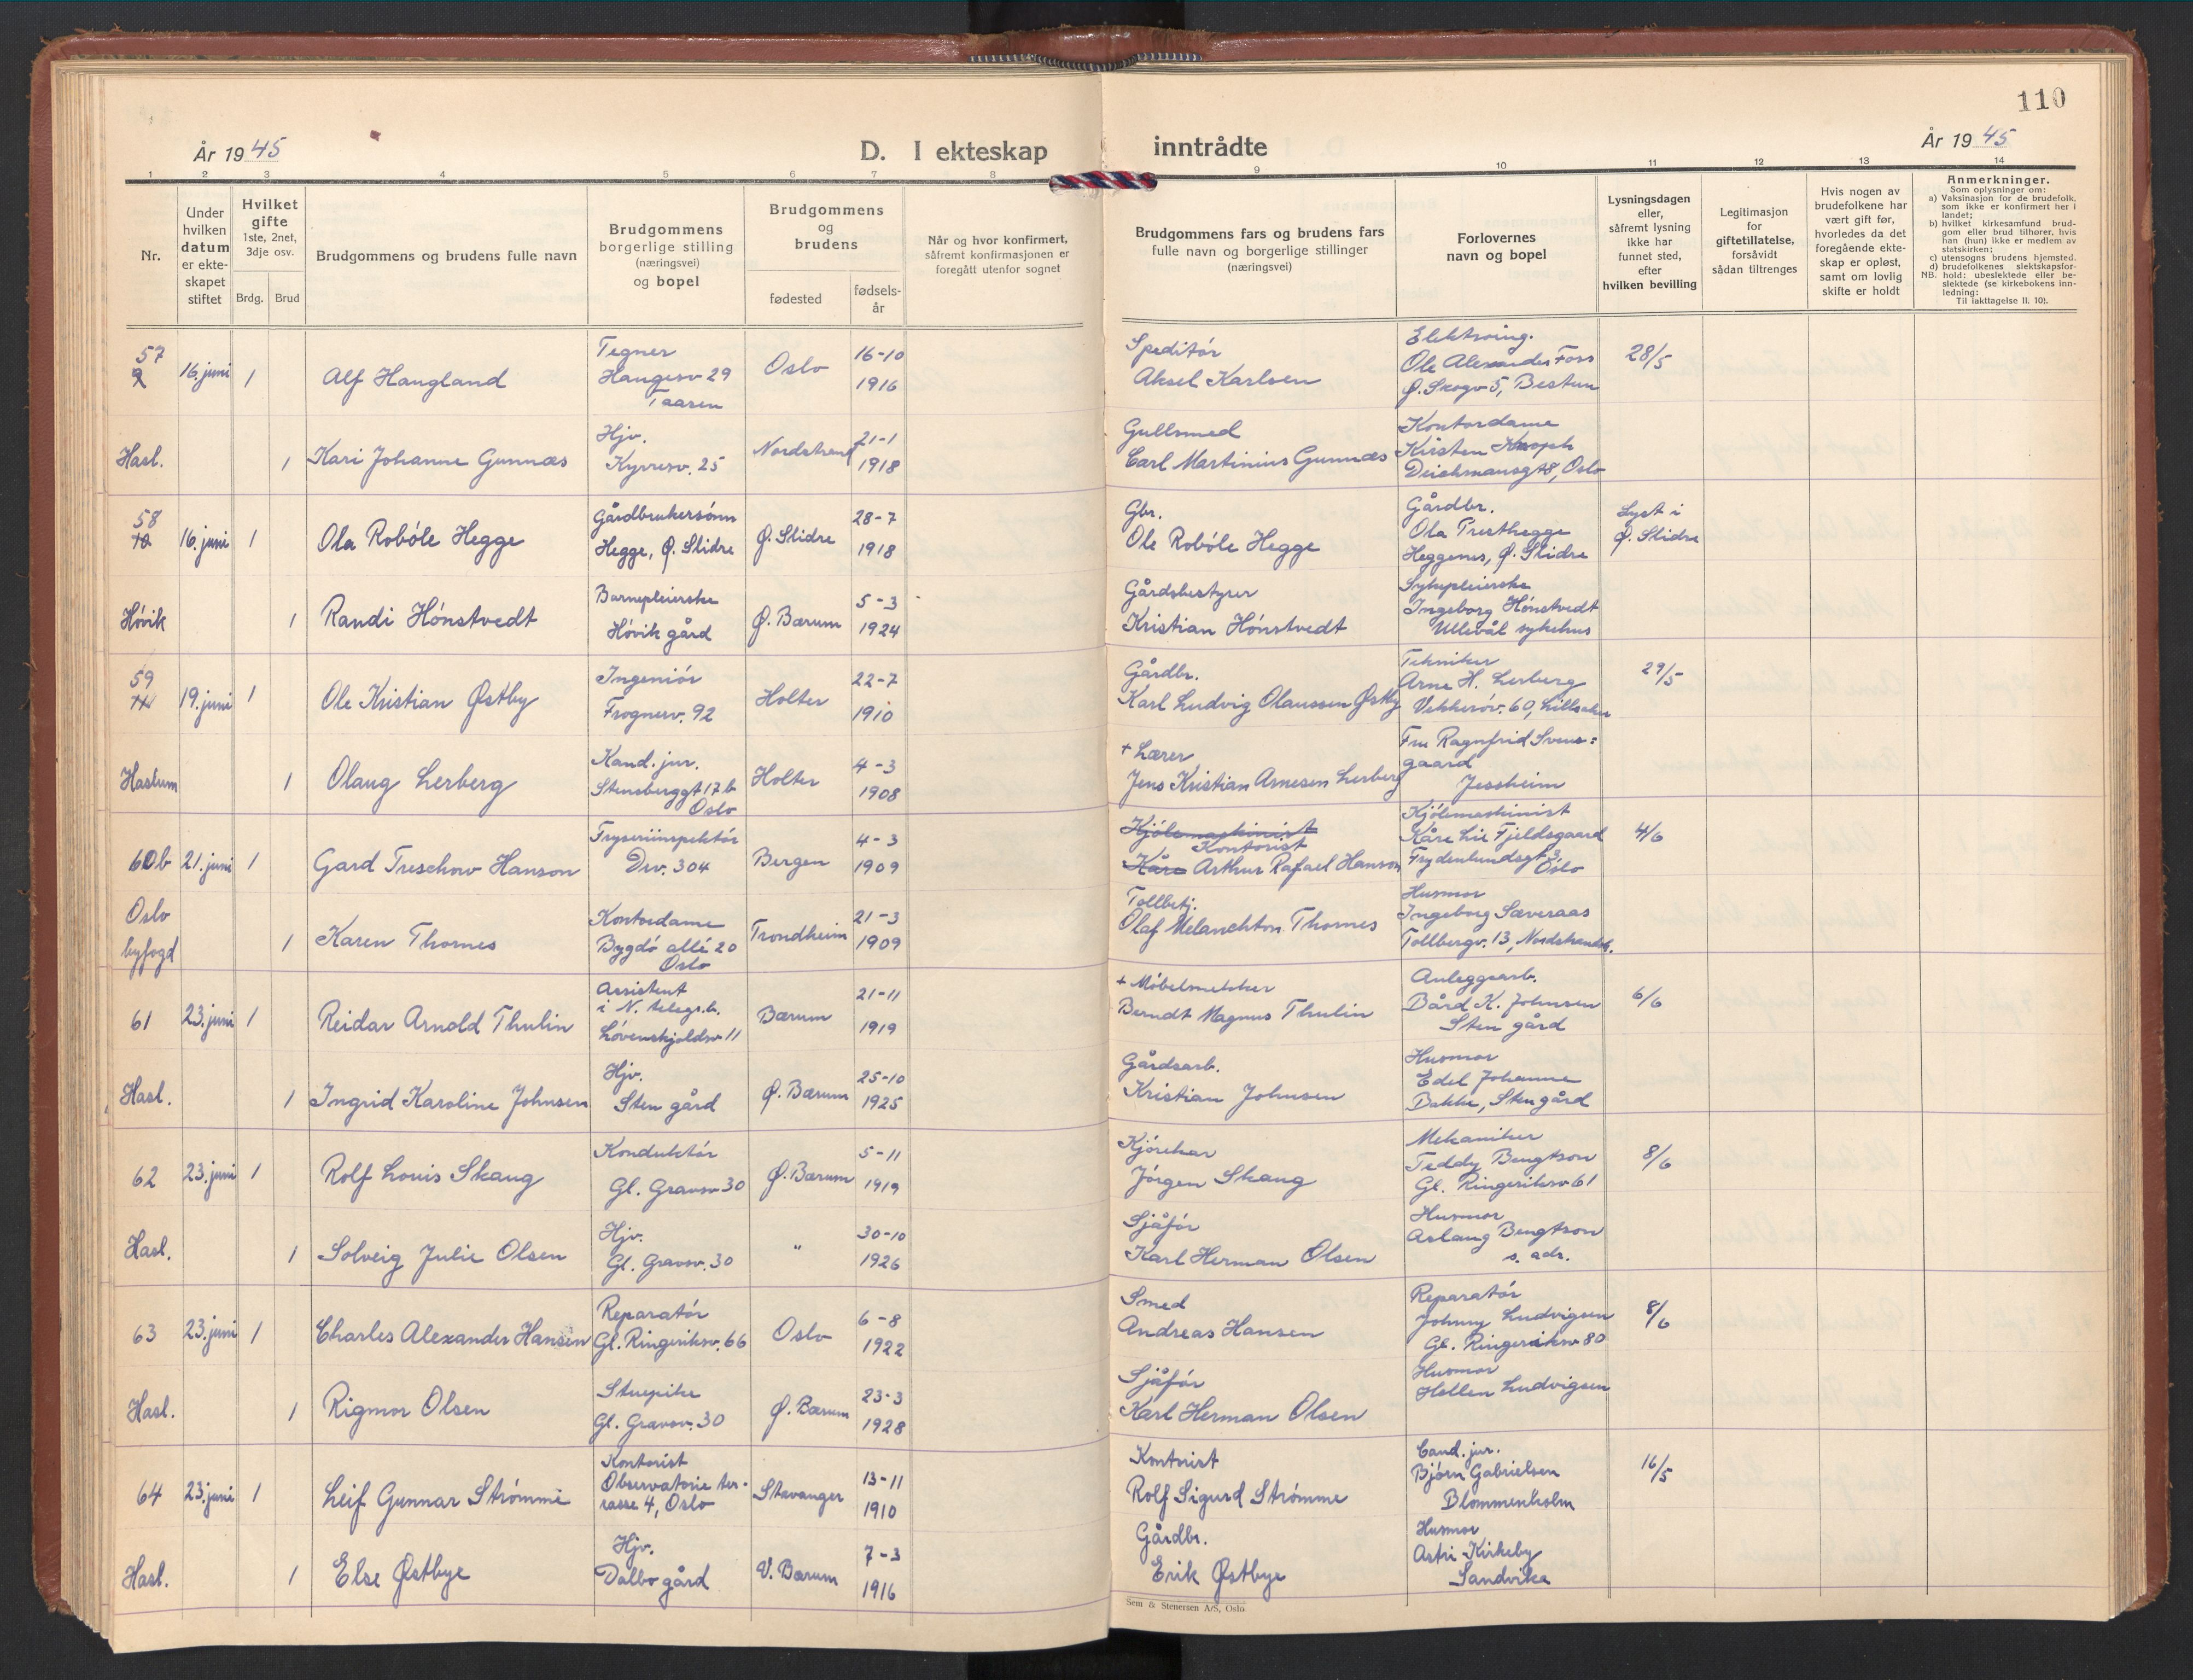 110
År 1945
D. I ekteskap inntrådte
År 1945
1 2 3 4 5 6 7 8 9 10 11 12 13 14
Nr.
Under hvilken datum er ekteskapet stiftet
Hvilket gifte
1ste, 2net, 3dje osv.
Brdg. Brud
Brudgommens og brudens fulle navn
Brudgommens borgerlige stilling (næringsvei) og bopel
Brudgommens og brudens
fødested
fødselsår
Når og hvor konfirmert, såfremt konfirmasjonen er foregått utenfor sognet
Brudgommens fars og brudens fars fulle navn og borgerlige stillinger (næringsvei)
Forlovernes navn og bopel
Lysningsdagen eller, såfremt lysning ikke har funnet sted, efter hvilken bevilling
Legitimasjon for giftetillatelse, forsåvidt sådan tiltrenges
Hvis nogen av brudefolkene har vært gift før, hvorledes da det foregående ekteskap er opløst, samt om lovlig skifte er holdt
Anmerkninger.
Som oplysninger om:
a) Vaksinasjon for de brudefolk, som ikke er konfirmert her i landet;
b) hvilket kirkesamfund brudgom eller brud tilhører, hvis han (hun) ikke er medlem av statskirken;
c) utensogns brudens hjemsted.
d) brudefolkenes slektskapsforhold: ubeslektede eller beslektede (se kirkebokens innledning:
NB.
Til iakttagelse II. 10).
57 16. juni 1 Alf Haugland Tegner Haugesv 29 Oslo 16-10 1916 Speditør Aksel Karlsen Elektroing. Ole Alexander Foss Ø. Skogv 5, Bestun 28/5
Hasl. 1 Kari Johanne Gunnæs Hjv. Kyrresv. 25 Nordstrand 21-1 1918 Gullsmed Carl Martinius Gunnæs Kontordame Kirsten Knoph Deichmansgt 8, Oslo
58 16. juni 1 Ola Robøle Hegge Gårdbrukersønn Hegge, Ø. Slidre Ø. Slidre 28-7 1918 Gbr. Ole Robøle Hegge Gårdbr. Ola Presthegge Heggenes, Ø. Slidre Lyst i Ø. Slidre
Høvik 1 Randi Hønstvedt Barnepleierske Høvik gård Ø. Bærum 5-3 1924 Gårdsbestyrer Kristian Hønstvedt Sykepleierske Ingeborg Hønstvedt Ullevål sykehus
59 19. juni 1 Ole Kristian Østby Ingeniør Frognerv. 92 Holter 22-7 1910 Gårdbr. Karl Ludvig Olaussen Østby Tekniker Arne H. Lerberg Vekkerøv. 60, Lilleaker 29/5
Haslum 1 Olaug Lerberg Kand. jur. Stensberggt 17 b Oslo Holter 4-3 1908 + Lærer Jens Kristian Arnesen Lerberg Fru Ragnfrid Svensgaard Jessheim
60b 21. juni 1 Gard Treschow Hanson Fryseriinspektør Drv. 304 Bergen 4-3 1909 Kjølemaskinist Kontorist Kåre Arthur Rafael Hanson Kjølemaskinist Kåre Lie Fjeldsgaard Frydenlundsgt 3 Oslo 4/6
Oslo byfogd 1 Karen Thornes Kontordame Bygdø allé 20 Oslo Trondheim 21-3 1909 Tollbetj. Olaf Melanchton Thornes Husmor Ingeborg Sæveraas Tollbergv. 13, Nordstrandsh.
61 23. juni 1 Reidar Arnold Thulin Assistent i N. telegr.b. Løvenskjoldsv 11 Bærum 21-11 1919 + Møbelsnekker Berndt Magnus Thulin Anleggsarb. Bård K. Johnsen Sten gård 6/6
Hasl. 1 Ingrid Karoline Johnsen Hjv. Sten gård Ø. Bærum 25-10 1925 Gårdsarb. Kristian Johnsen Husmor Edel Johanne Bakke, Sten gård
62 23. juni 1 Rolf Louis Skaug Konduktør Gl. Gravsv 30 Ø. Bærum 5-11 1919 Kjørekar Jørgen Skaug Mekaniker Teddy Bengtson Gl. Ringeriksv 61 8/6
Hasl. 1 Solveig Julie Olsen Hjv. Gl. Gravsv. 30 " 30-10 1926 Sjåfør Karl Herman Olsen Husmor Aslaug Bengtson s. adr.
63 23. juni 1 Charles Alexander Hansen Reparatør Gl. Ringeriksv. 66 Oslo 6-8 1922 Smed Andreas Hansen Reparatør Johnny Ludvigsen Gl. Ringeriksv 80 8/6
Hasl. 1 Rigmor Olsen Stuepike Gl. Gravsv. 30 Ø. Bærum 23-3 1928 Sjåfør Karl Herman Olsen Husmor Hellen Ludvigsen
64 23. juni 1 Leif Gunnar Strømme Kontorist Observatorie terrasse 4, Oslo Stavanger 13-11 1910 Kontorist Rolf Sigurd Strømme Cand. jur. Bjørn Gabrielsen Blommenholm 16/5
Hasl. 1 Else Østbye Hjv. Dalbo gård V. Bærum 7-3 1916 Gårdbr. Erik Østbye Husmor Astri Kirkeby Sandvika
Sem & Stenersen A/S, Oslo.